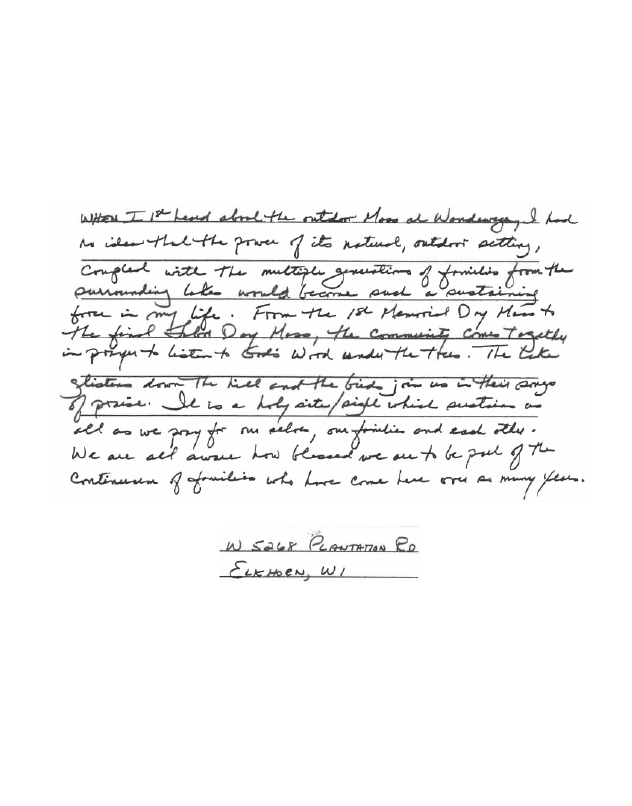 WHEN I 1st heard about the outdoor Mass at Wandawega, I had
no idea that the power of its natural, outdoor setting,
coupled with the multiple generations of families from the
surrounding lakes would become such a sustaining
force in my life. From the 1st Memorial Day Mass to
the final Labor Day Mass, the community comes together
in prayer to listen to God's Word under the trees. The lake
glistens down the hill and the birds join us in their songs
of praise. It is a holy site/sight which sustains us
all as we pray for our selves, our families and each other.
We are all aware how blessed we are to be part of the
continuum of families who have come here over so many years.
W 5268 PLANTATION RD
ELKHORN, WI